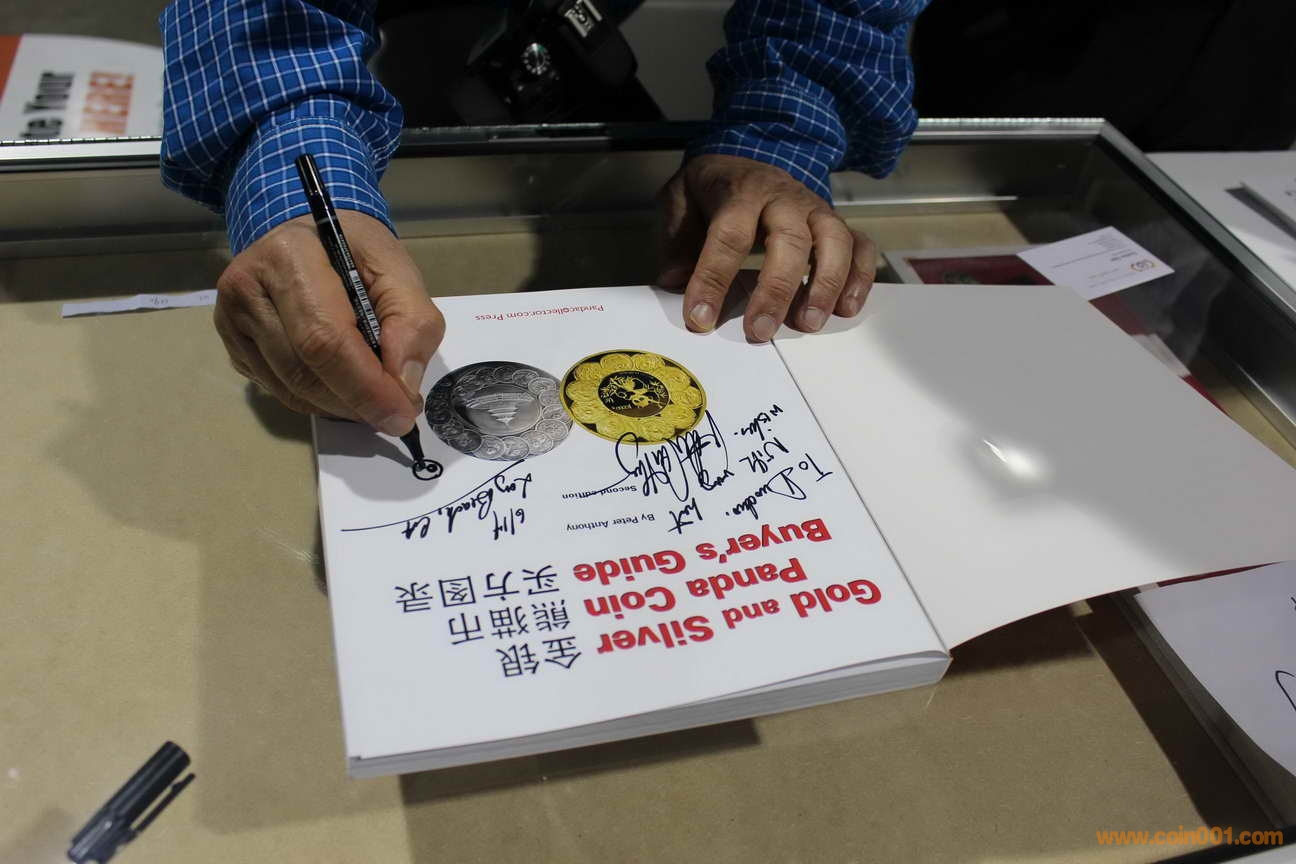 Gold and Silver
Panda Coin
Buyer's Guide
金银
熊猫币
买方图录
By Peter Anthony
Second edition
To
With very best
wishes.
6/14
Long Beach, CA
Pandacollector.com Press
www.coin001.com